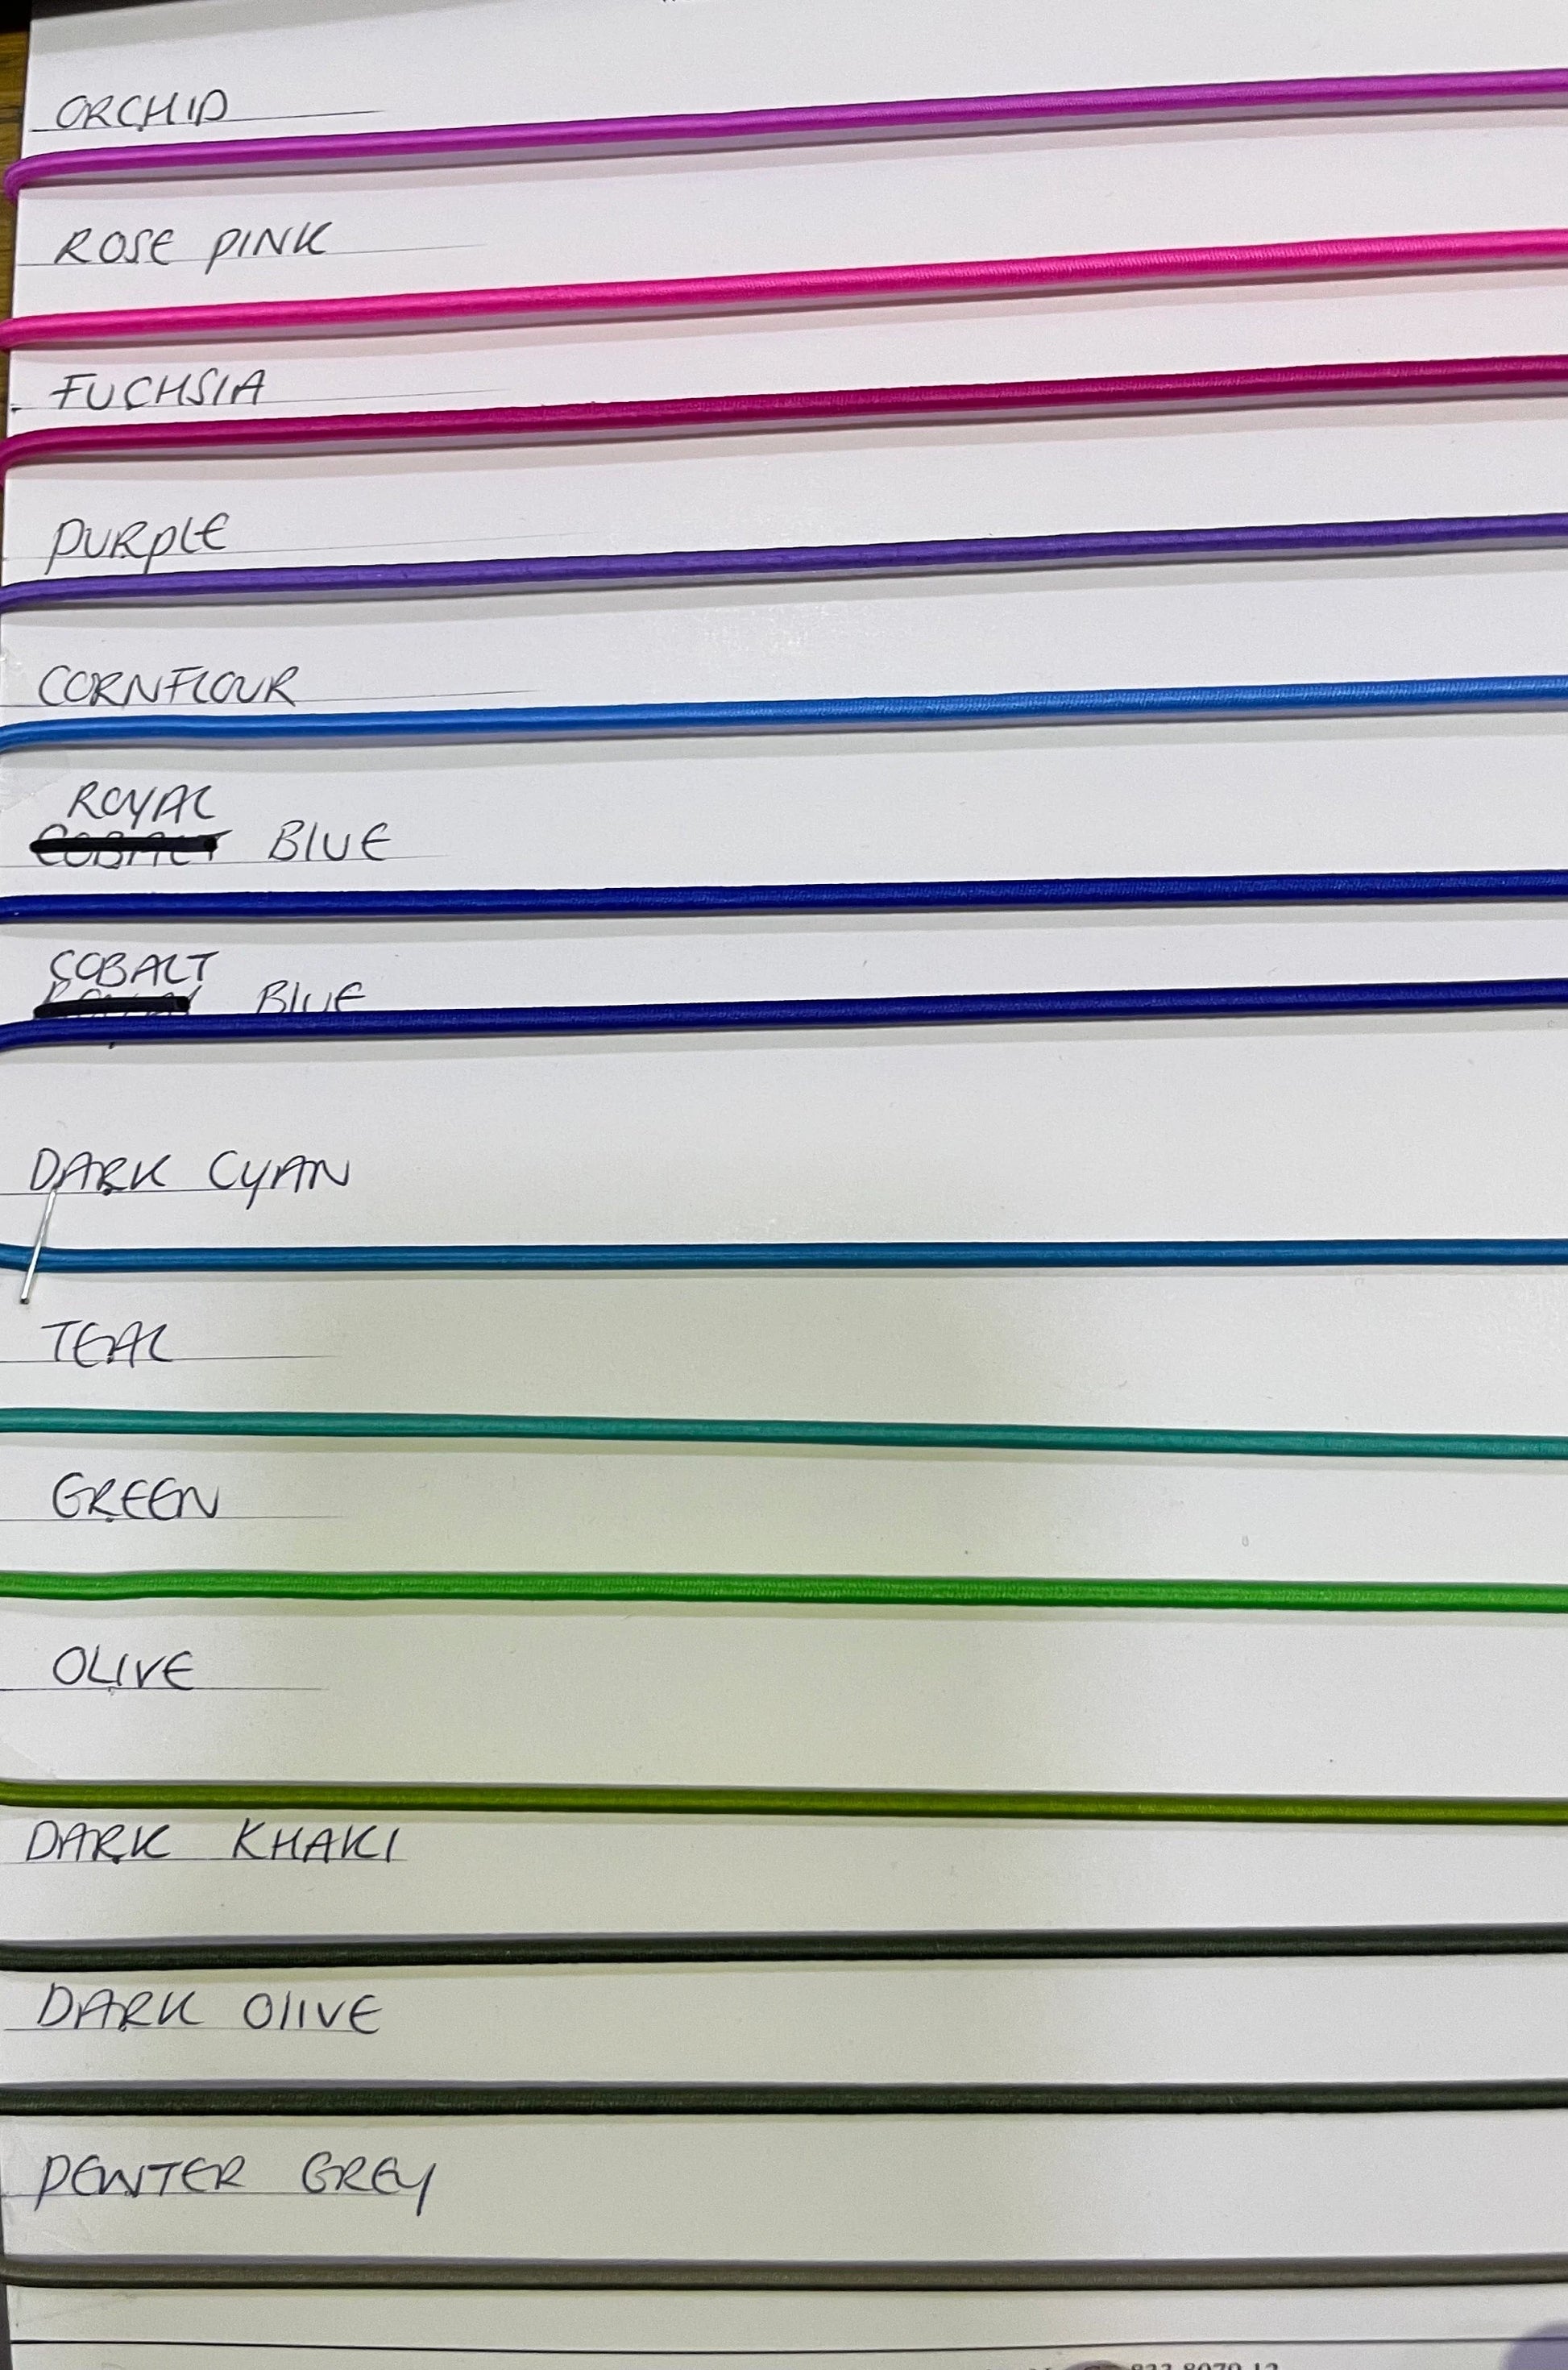 ORCHID
ROSE PINK
FUCHSIA
PURPLE
CORNFLOUR
ROYAL
COBALT BLUE
COBALT
BLUE
DARK CYAN
TEAL
GREEN
OLIVE
DARK KHAKI
DARK OLIVE
PEWTER GREY